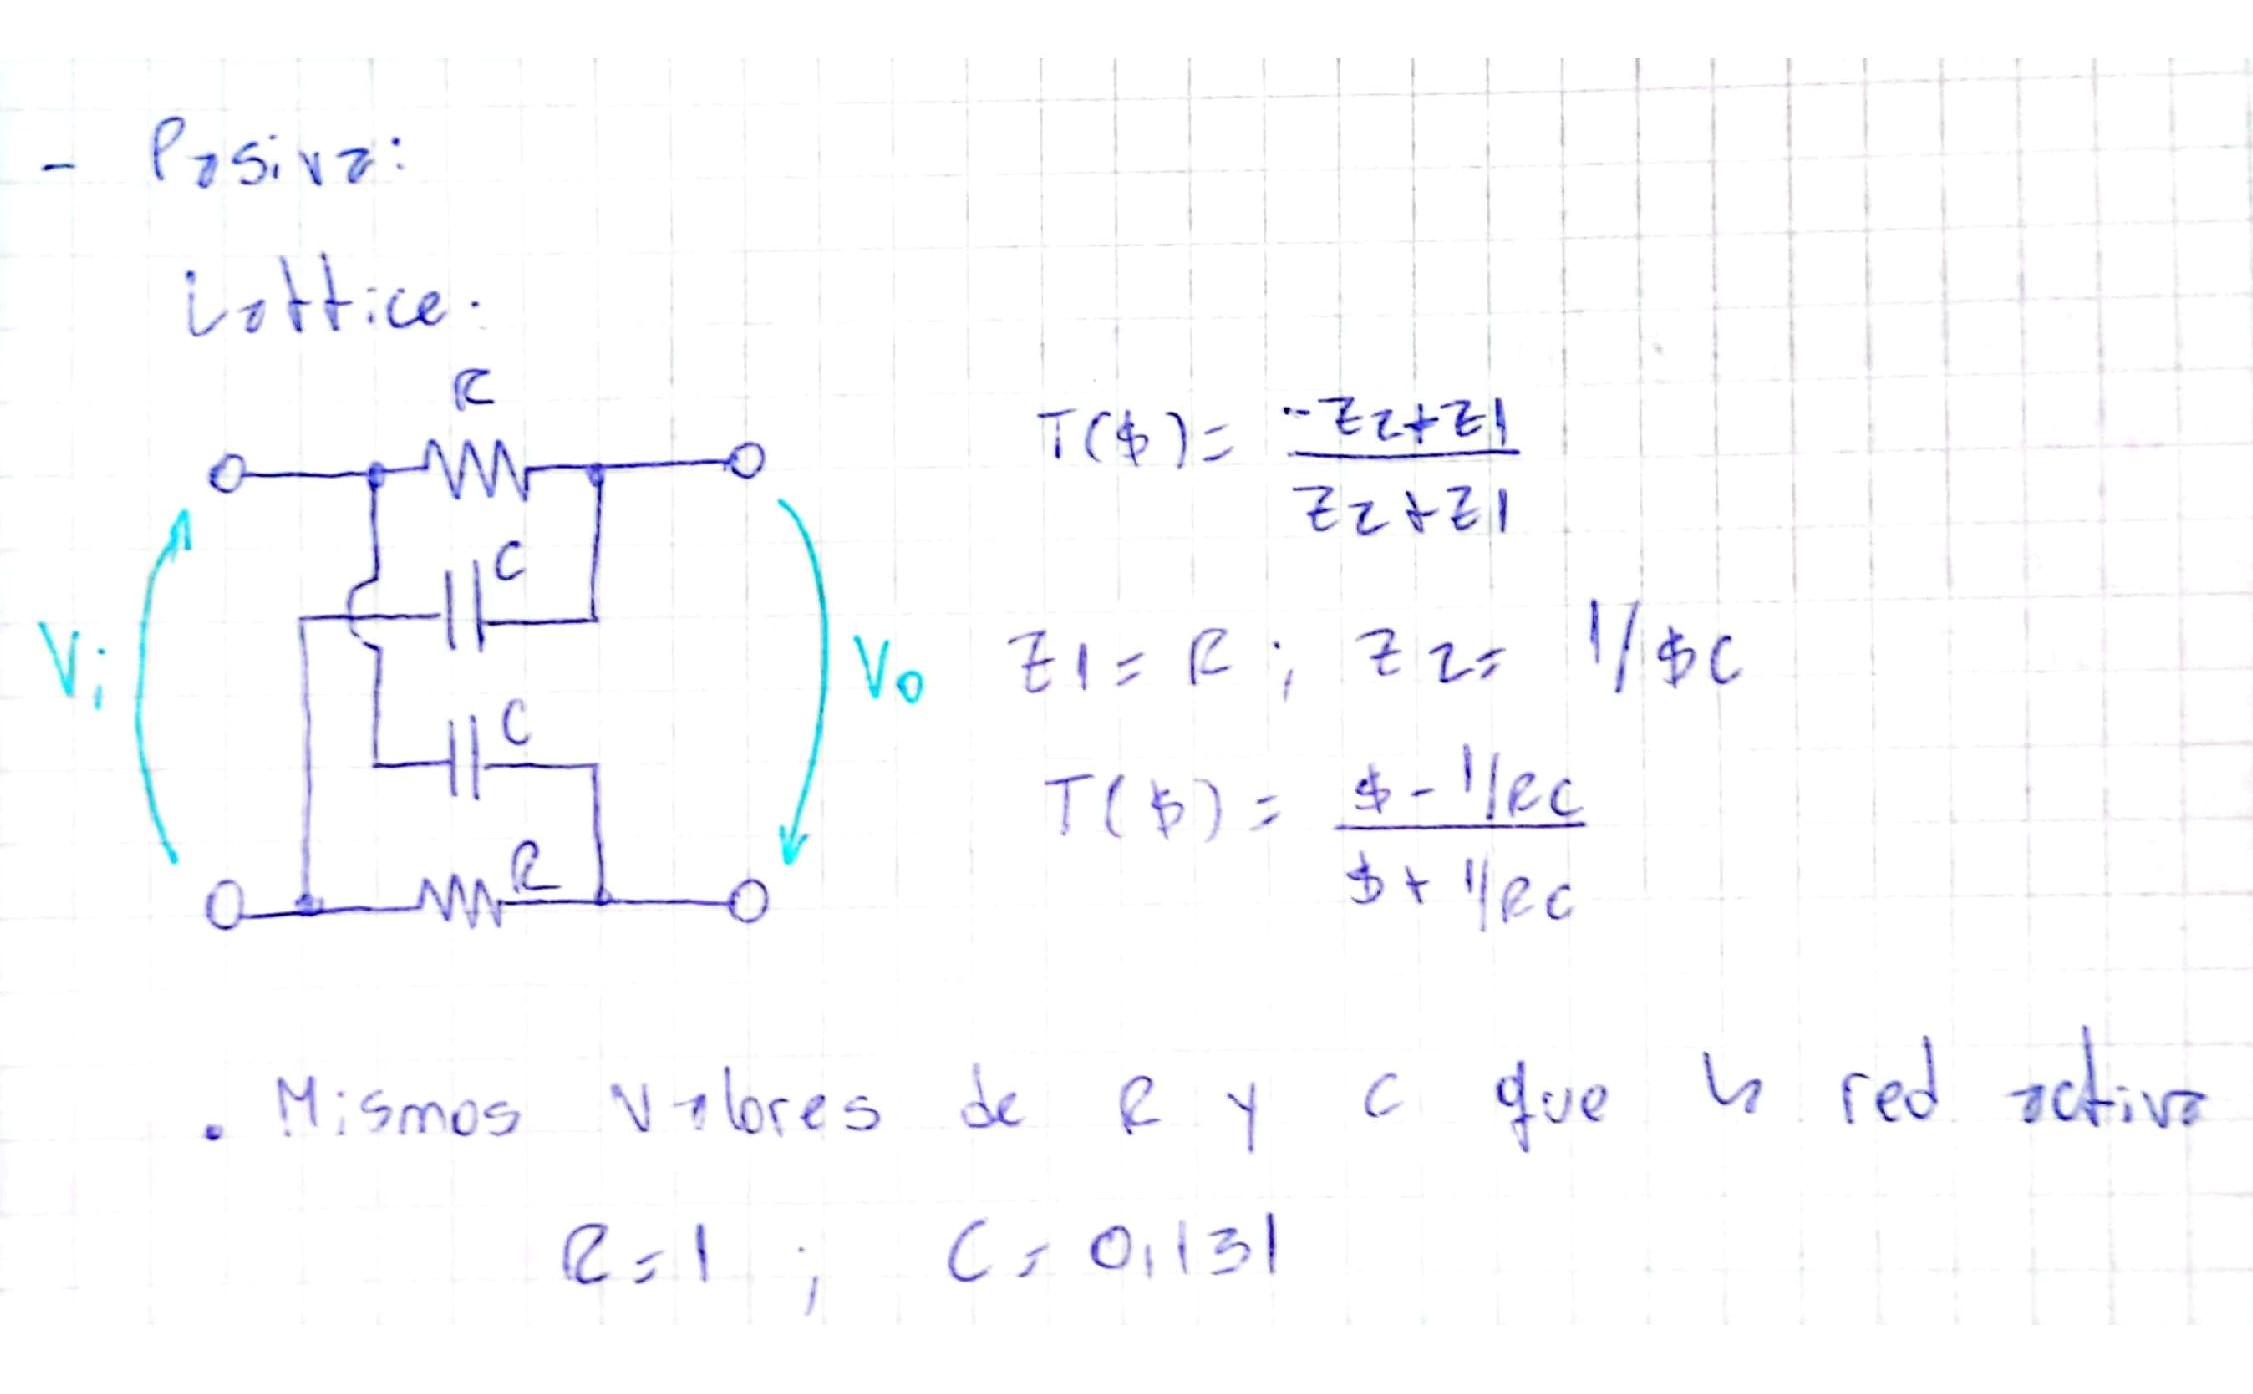 - Pasiva:
Lattice.
R
C
C
R
Vi
Vo
T($) = -Z2+Z1 / Z2+Z1
Z1 = R ; Z2 = 1/$C
T($) = $ - 1/RC / $ + 1/RC
• Mismos valores de R y C que la red activa
R=1 ; C= 0,131